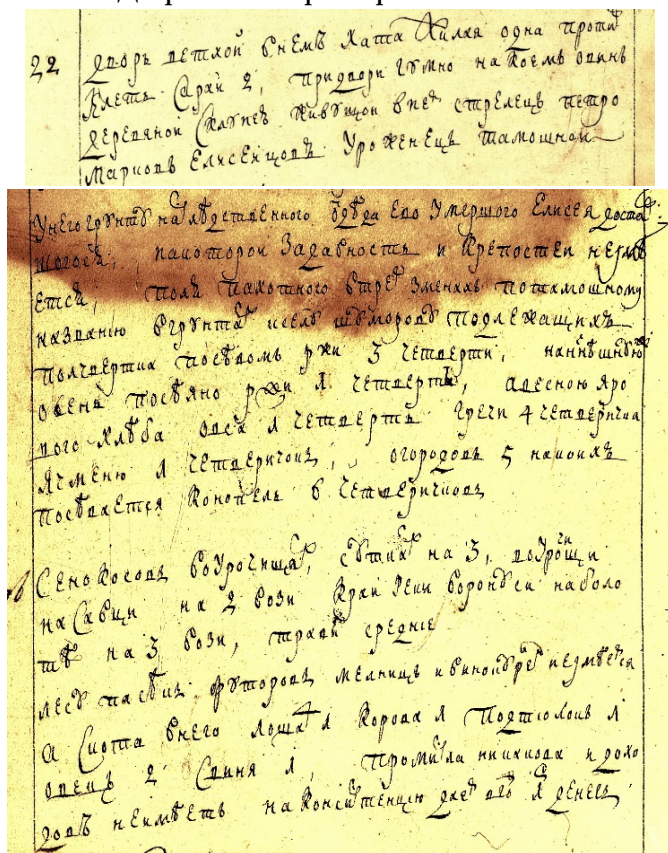 22 дворъ ветхой внемъ хата жилая одна против
клеть сарай 2, придвори гумно накоемъ овинъ
деревяной живущой стрелецъ петро
марковъ елисенцовъ уроженецъ тамошной
Унего грунту наследственного здеда его умершого елисея доста
шогося, накоторой задавность и крепостей неиме
ется, поля пахотного втрех зменахъ потамошному
названию вгрунтах села шуморова подлежащихъ
полчвертка посевомъ ржи 3 четверти, нанинешную
овень посеяно ржи 1 четверть, авесною яро
вого хлеба овса 1 четверть гречи 4 четверичка
ячменю 1 четверичокъ, огородовъ 5 накоихъ
посевается конопель 6 четверичковъ
сенокосовъ воурочищах, на 3, воурочи
насавци на 2 вози край реки воронуси наболо
те на 3 вози, травы средние
лесу пасекъ футоровъ мелницъ ивинокурен неимеется
а скота внего лоша 4 корова 1 подтюлокъ 1
овецъ 2 свиня 1, промисла никакова идохо
довъ неимеетъ наконсистенцию дает вгод денегъ